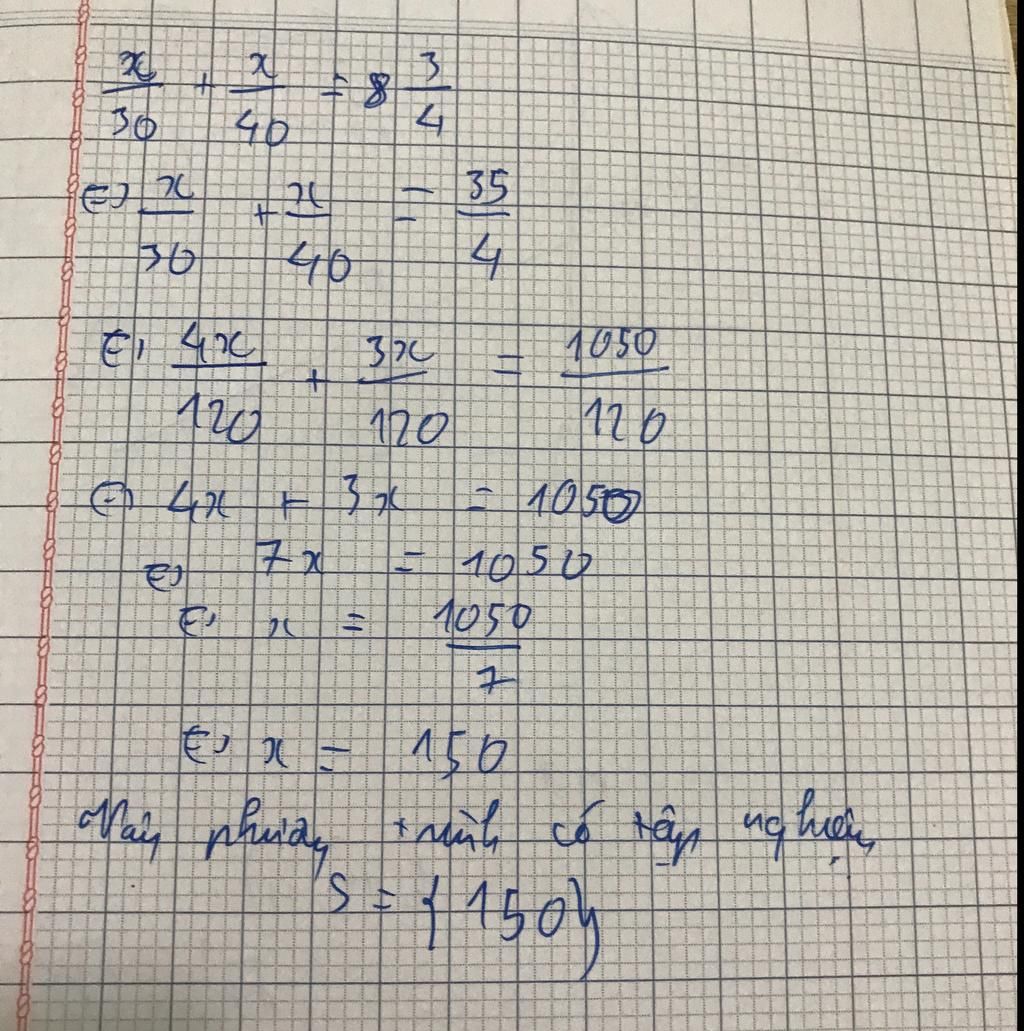 x/30 + x/40 = 8 3/4
⇔ x/30 + x/40 = 35/4
⇔ 4x/120 + 3x/120 = 1050/120
⇔ 4x + 3x = 1050
⇔ 7x = 1050
⇔ x = 1050/7
⇔ x = 150
Vậy phương trình có tập nghiệm
S = {150}